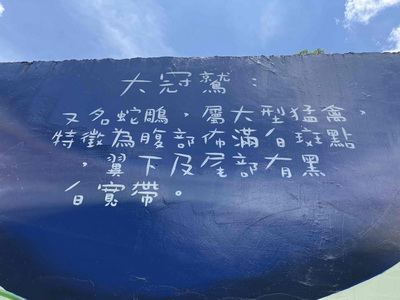 大冠鷲：
又名蛇鵰，屬大型猛禽，
特徵為腹部佈滿白斑點
，翼下及尾部有黑
白寬帶。